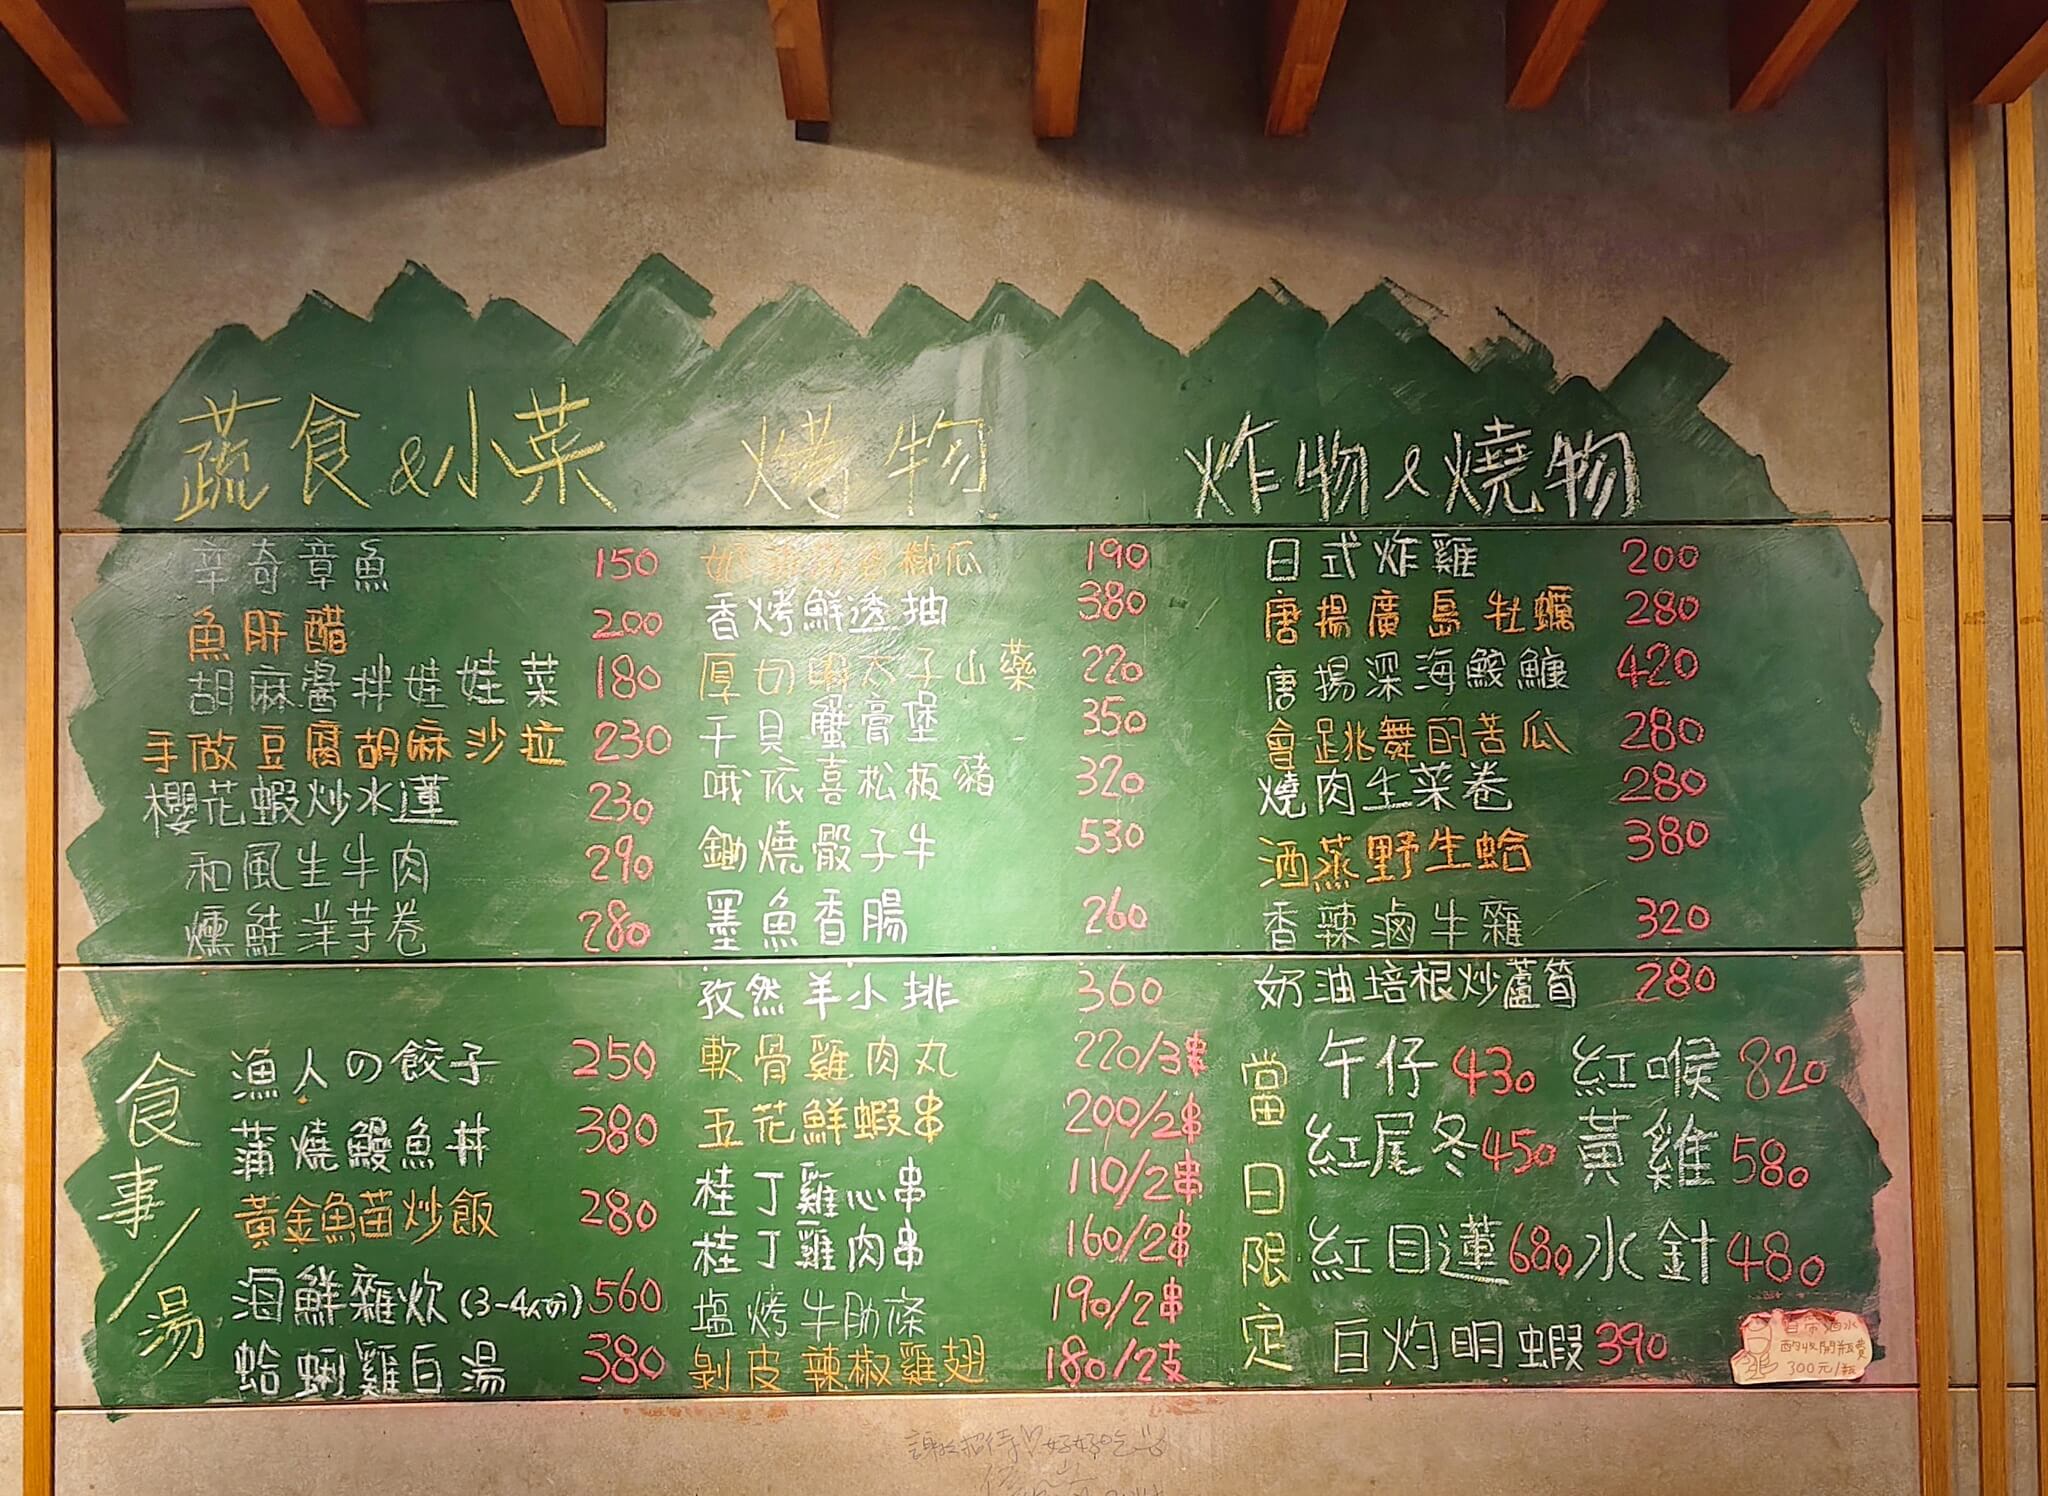 蔬食&小菜
辛奇章魚 150
魚肝醋 200
胡麻醬拌娃娃菜 180
手做豆腐胡麻沙拉 230
櫻花蝦炒水蓮 230
和風生牛肉 290
燻鮭洋芋卷 280
食事/湯
漁人の餃子 250
蒲燒鰻魚丼 380
黃金魚苗炒飯 280
海鮮雜炊(3-4人份) 560
蛤蜊雞白湯 380
烤物
櫛瓜 190
香烤鮮透抽 380
厚切明太子山藥 220
干貝蟹膏堡 350
哦依喜松板豬 320
鋤燒骰子牛 530
墨魚香腸 260
孜然羊小排 360
軟骨雞肉丸 220/3串
五花鮮蝦串 200/2串
桂丁雞心串 110/2串
桂丁雞肉串 160/2串
塩烤牛肋條 190/2串
剝皮辣椒雞翅 180/2支
炸物&燒物
日式炸雞 200
唐揚廣島牡蠣 280
唐揚深海鮟鱇 420
會跳舞的苦瓜 280
燒肉生菜卷 280
酒蒸野生蛤 380
香辣滷牛雜 320
奶油培根炒蘆筍 280
當日限定
午仔 430 紅喉 820
紅尾冬 450 黃雞 580
紅目蓮 680 水針 480
白灼明蝦 390
自帶酒水
酌收開瓶費
300元/瓶
招待♡好好吃